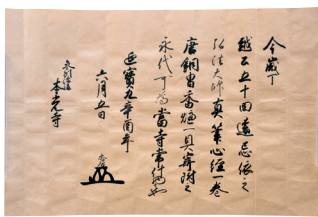 今歳丁
越五十回遠忌依之
弘法大師真筆心経一巻
唐銅曽香爐一具寄附之
永代可為當寺常什物也
延寶九辛酉年
六月五日
本光寺